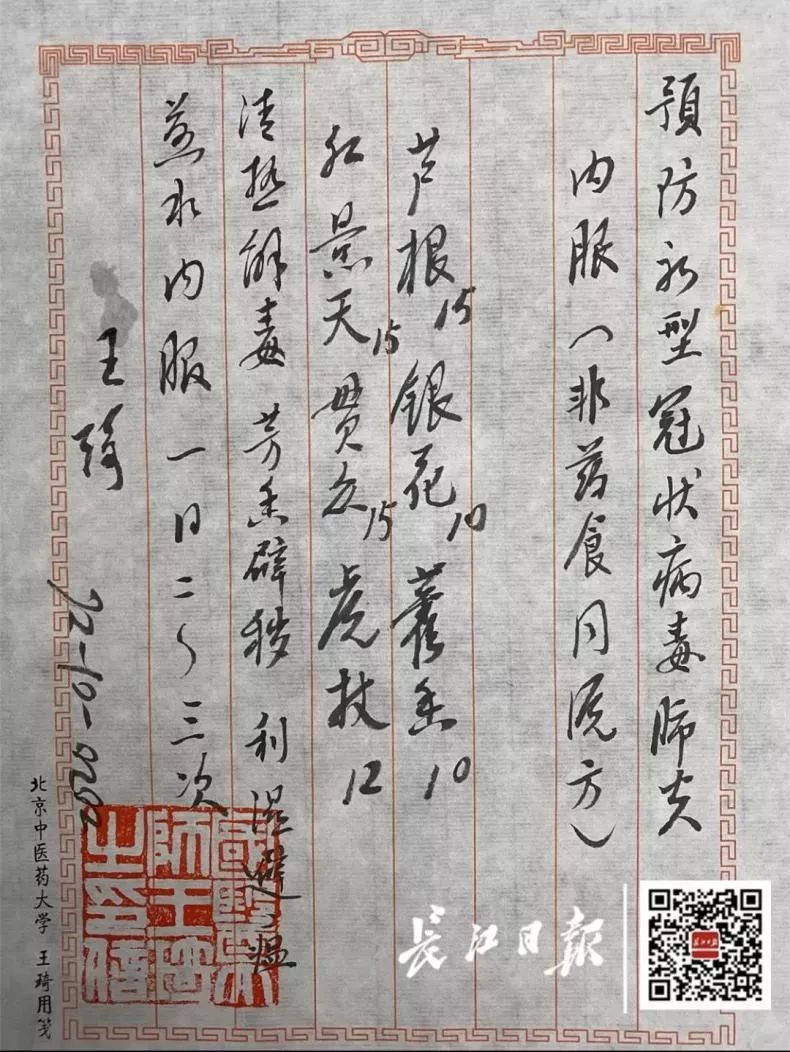 預防新型冠状病毒肺炎
内服（非药食同源方）
芦根15 银花10 藿香10
红景天15 贯众15 虎杖12
清热解毒 芳香辟秽 利湿避瘟
煎水内服 一日二～三次
王琦
國醫大
師王琦
之印信
北京中医药大学 王琦用笺
长江日报